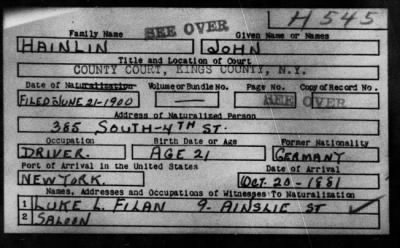 H 545
Family Name SEE OVER Given Name or Names
HAINLIN JOHN
Title and Location of Court
COUNTY COURT, KINGS COUNTY, N.Y.
Date of Naturalization Volume or Bundle No. Page No. Copy of Record No.
FILED JUNE 21-1900 — SEE OVER
Address of Naturalized Person
385 SOUTH-4TH ST.
Occupation Birth Date or Age Former Nationality
DRIVER. AGE 21 GERMANY
Port of Arrival in the United States Date of Arrival
NEW YORK. OCT-20-1881
Names, Addresses and Occupations of Witnesses To Naturalization
1 LUKE L. FILAN 9- AINSLIE ST
2 SALOON